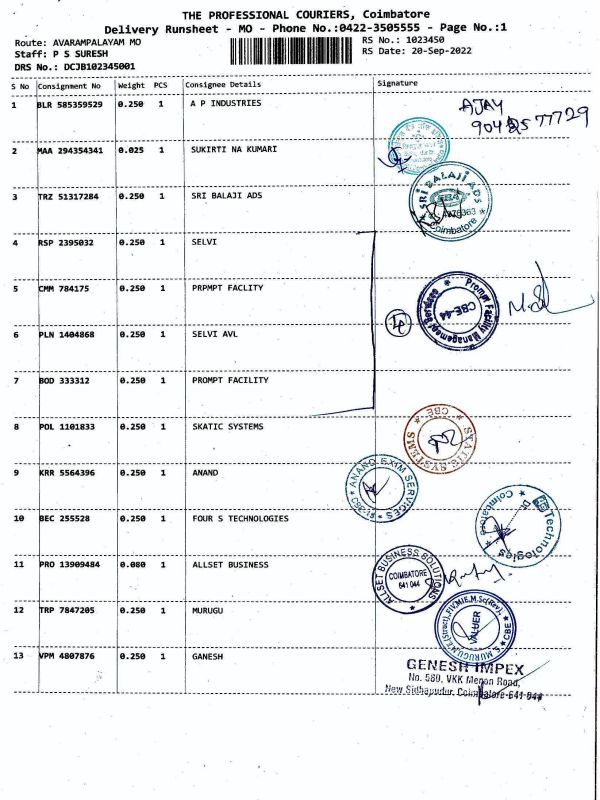 THE PROFESSIONAL COURIERS, Coimbatore
Delivery Runsheet - MO - Phone No.:0422-3505555 - Page No.:1
Route: AVARAMPALAYAM MO
RS No.: 1023450
Staff: P S SURESH
RS Date: 20-Sep-2022
DRS No.: DCJB102345001
S No Consignment No Weight PCS Consignee Details Signature
1 BLR 585359529 0.250 1 A P INDUSTRIES
AJAY
2 MAA 294354341 0.025 1 SUKIRTI NA KUMARI
3 TRZ 51317284 0.250 1 SRI BALAJI ADS
SRI BALAJI ADS
Coimbatore
4 RSP 2395032 0.250 1 SELVI
5 CMM 784175 0.250 1 PRPMPT FACLITY
Prompt Facility Management Services
CBE-44
6 PLN 1404868 0.250 1 SELVI AVL
7 BOD 333312 0.250 1 PROMPT FACILITY
8 POL 1101833 0.250 1 SKATIC SYSTEMS
CBE
9 KRR 5564396 0.250 1 ANAND
ANAND EXIM SERVICES
10 BEC 255528 0.250 1 FOUR S TECHNOLOGIES
Technologies
Coimbatore
11 PRO 13909484 0.080 1 ALLSET BUSINESS
ALLSET BUSINESS SOLUTIONS
COIMBATORE
641 044
12 TRP 7847205 0.250 1 MURUGU
VALUER
CBE
13 VPM 4807876 0.250 1 GANESH
GENESH IMPEX
No. 589, VKK Menon Road,
New Sidhapudur, Coimbatore-641 044